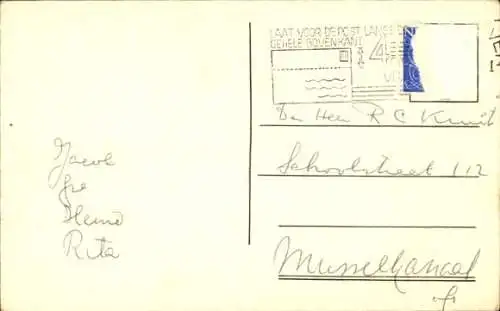 LAAT VOOR DE POST LANGS DE
GEHELE BOVENKANT
4
Den Heer R C Kruit
Schoolstraat 112
Musselkanaal
Jacob
Heine
Rita